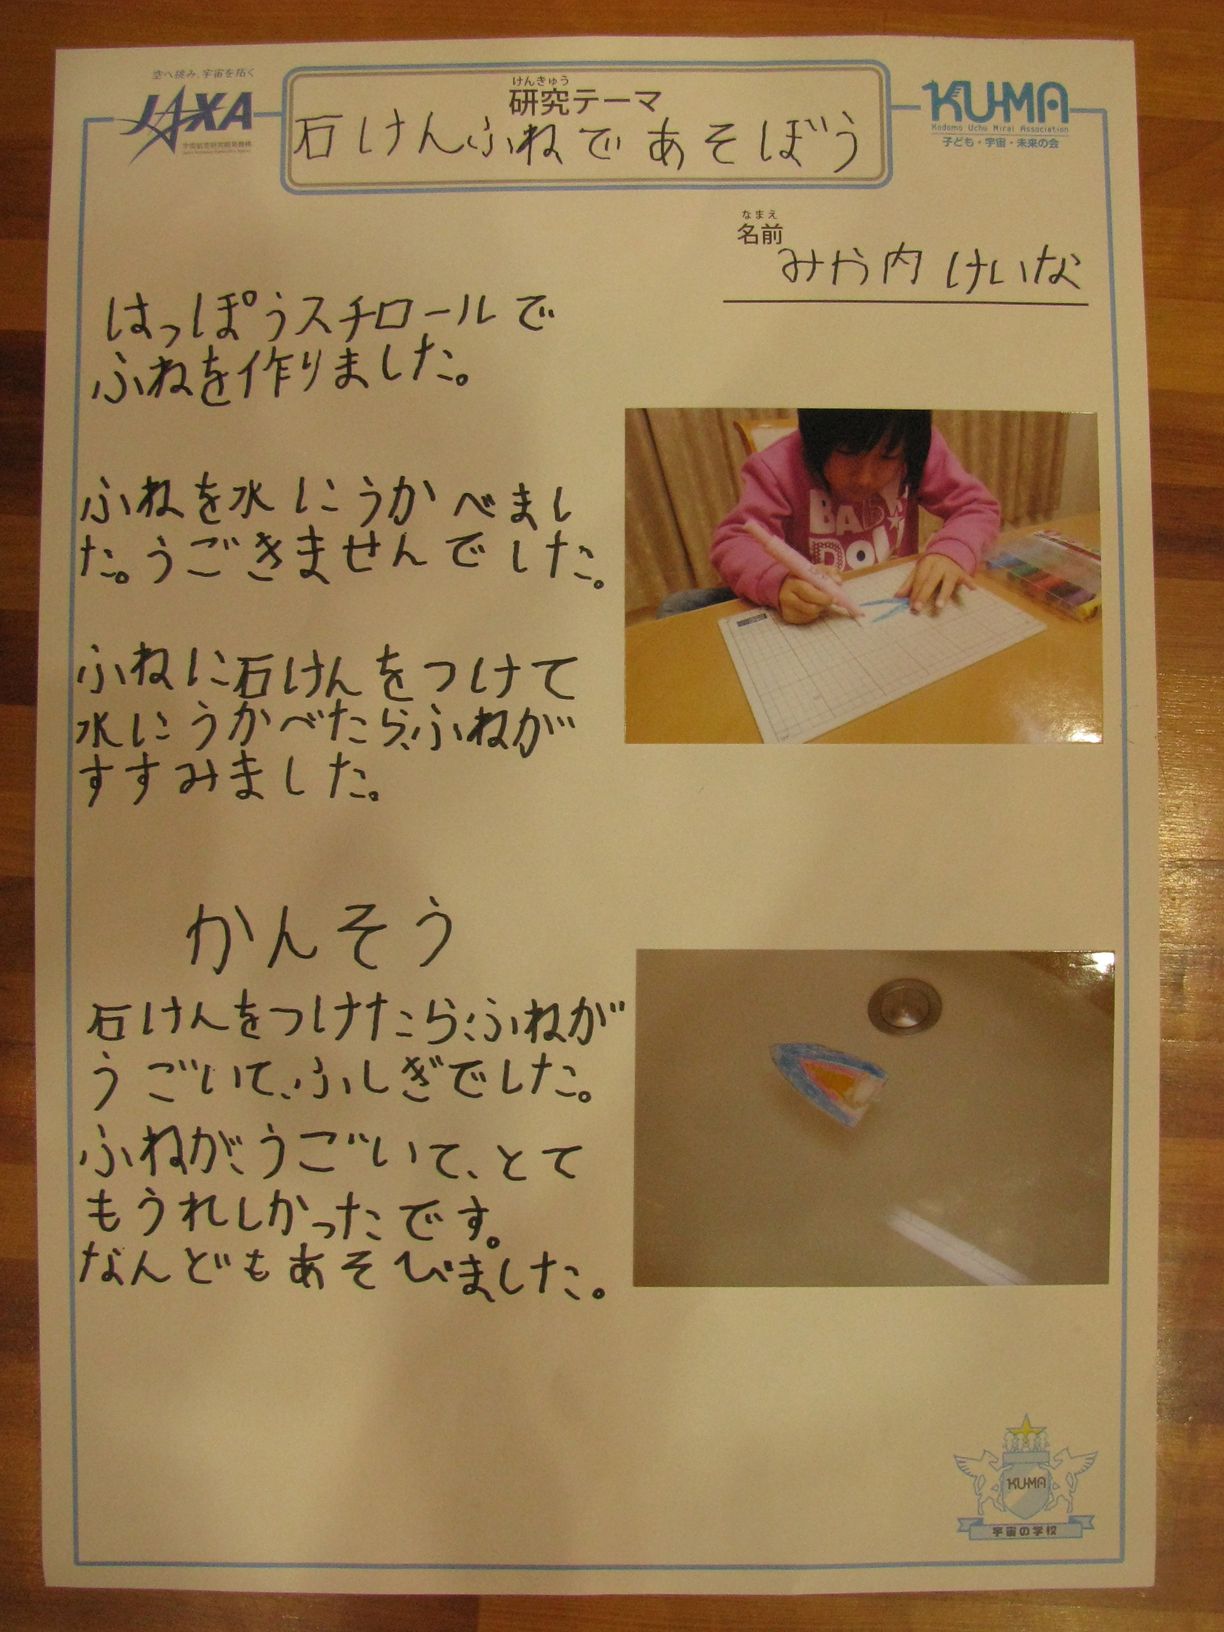 空へ挑み、宇宙を拓く
JAXA
宇宙航空研究開発機構
けんきゅう
研究テーマ
石けんふねであそぼう
KU-MA
Kodomo Uchu Mirai Association
子ども・宇宙・未来の会
なまえ
名前
みや内 けいな
はっぽうスチロールで
ふねを作りました。
ふねを水にうかべまし
た。うごきませんでした。
ふねに石けんをつけて
水にうかべたら、ふねが
すすみました。
かんそう
石けんをつけたら、ふねが
うごいて、ふしぎでした。
ふねが、うごいて、とて
もうれしかったです。
なんどもあそびました。
KU-MA
宇宙の学校